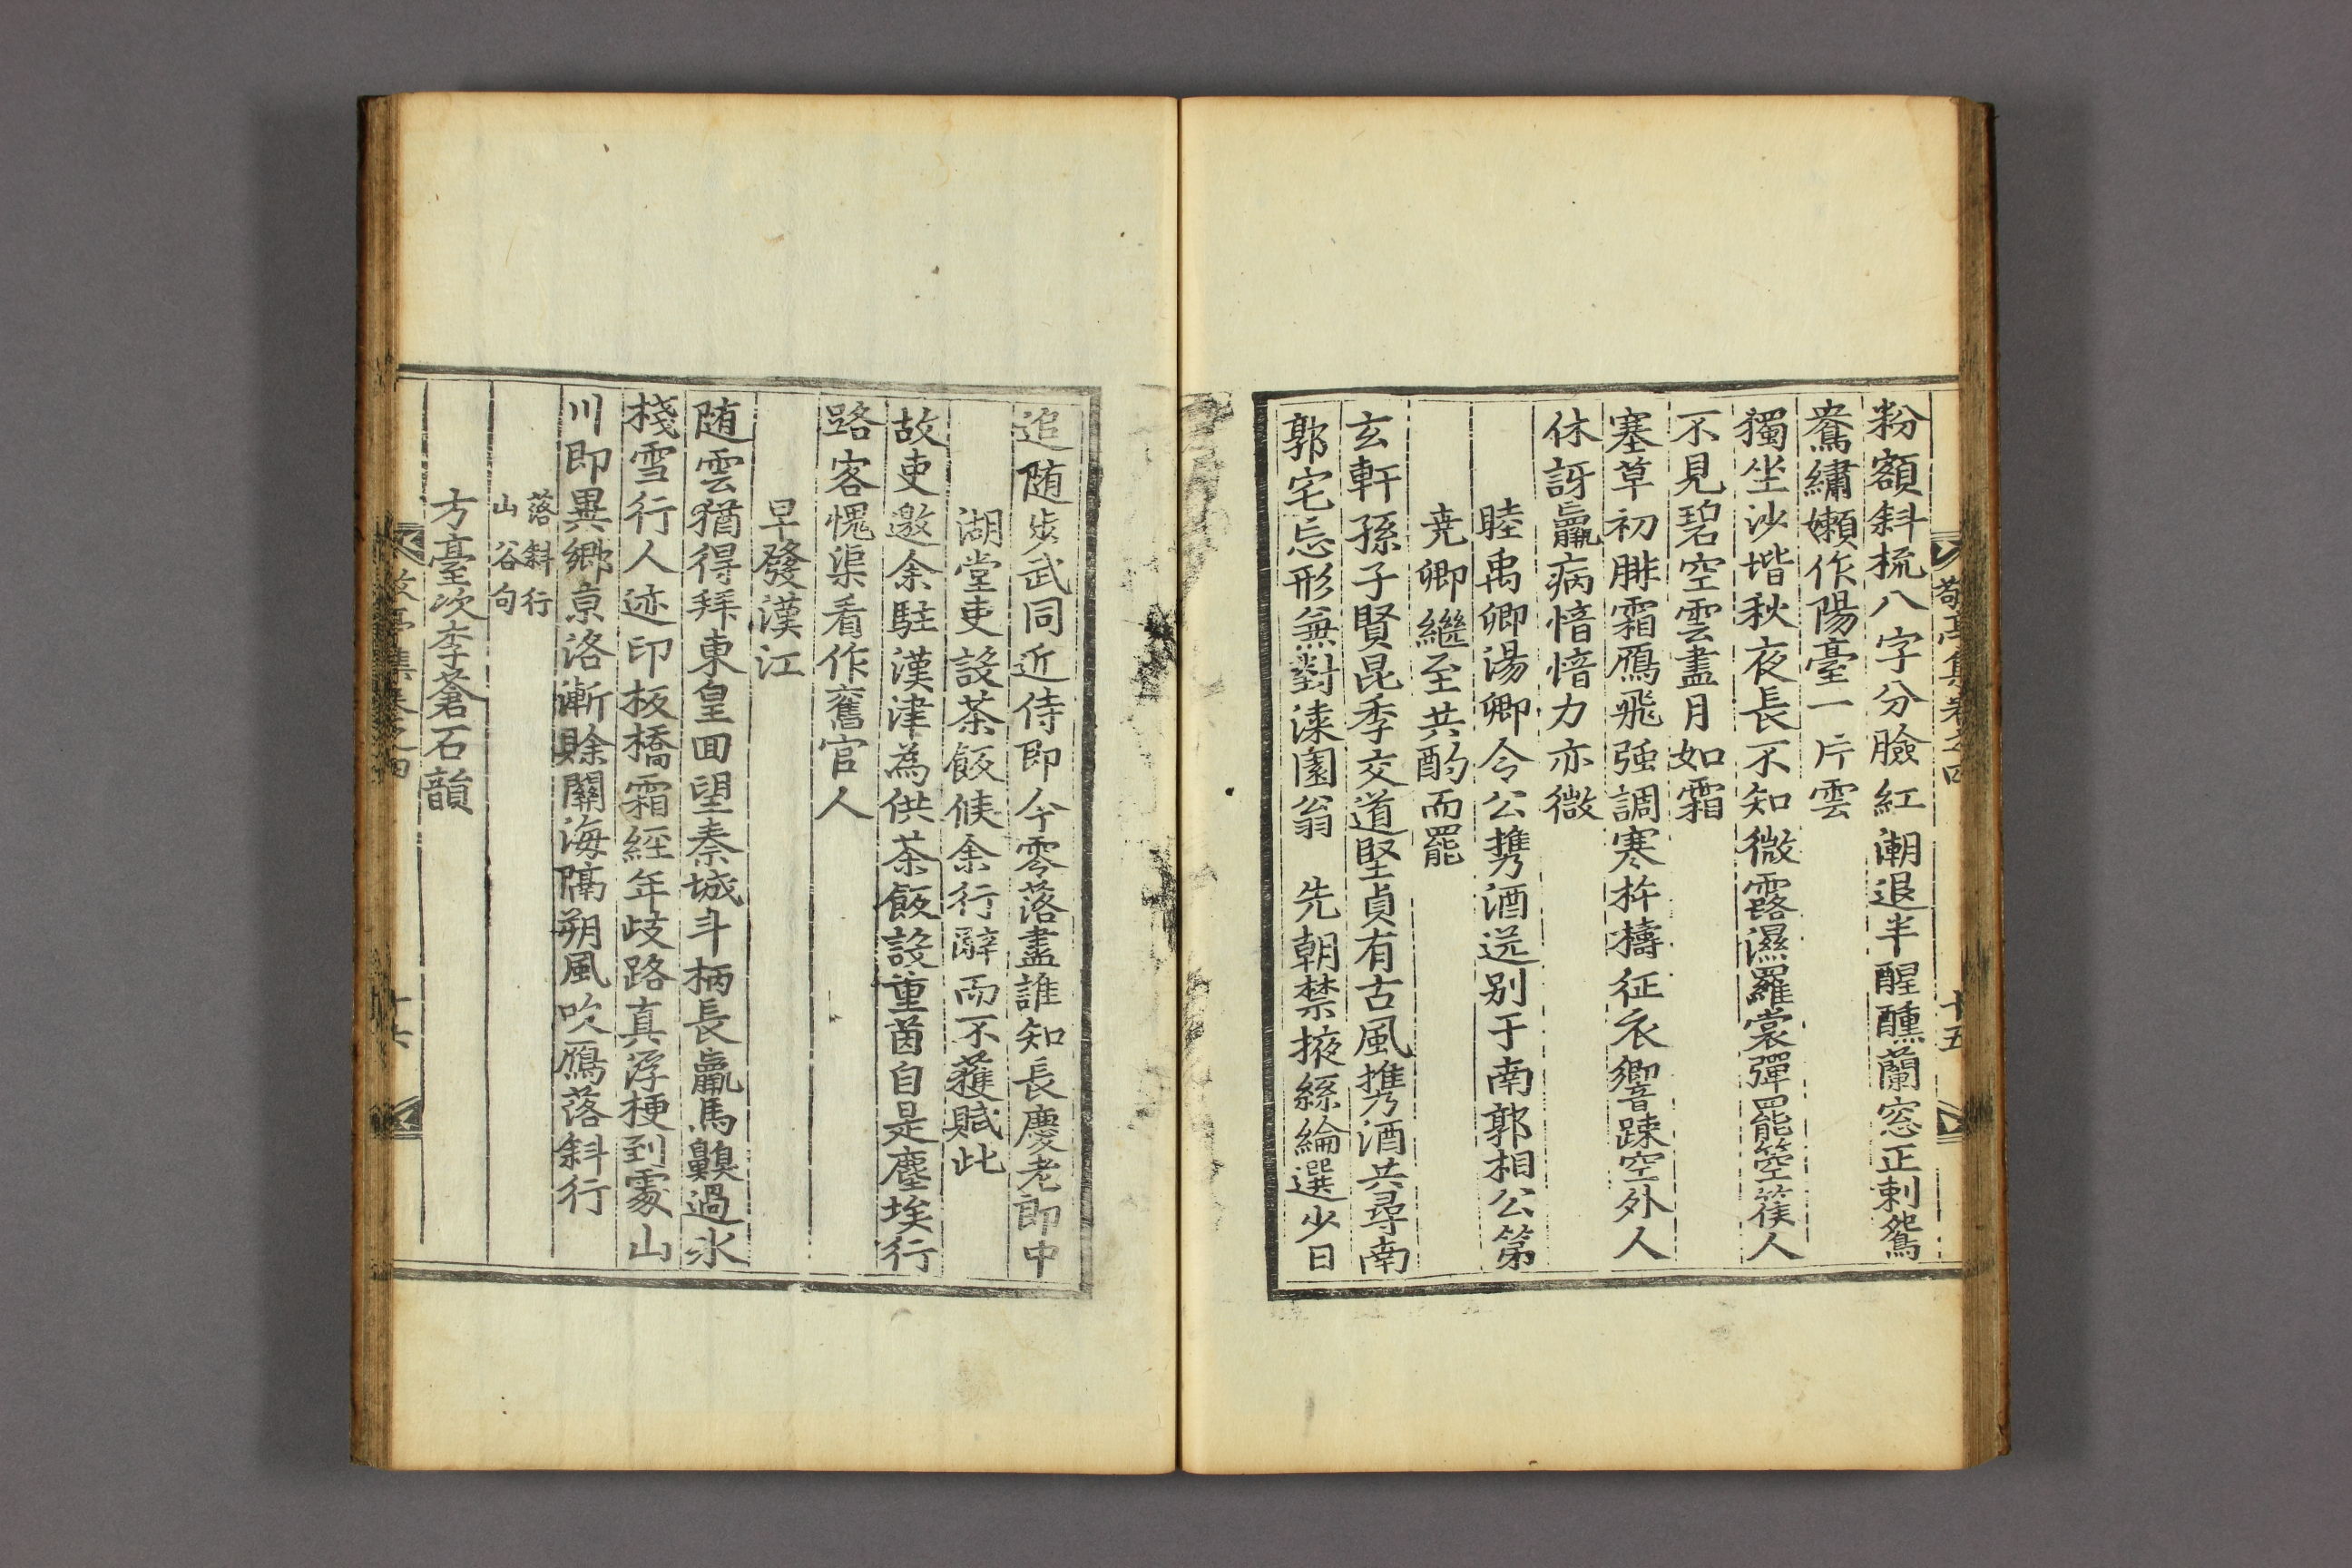 粉額斜梳八字分臉紅潮退半醒醺蘭窓正刺鴛
鴦繡嬾作陽臺一片雲
獨坐沙堦秋夜長不知微露濕羅裳彈罷箜篌人
不見碧空雲盡月如霜
塞草初腓霜鴈飛強調寒杵擣征衣響踈空外人
休訝羸病愔愔力亦微
睦禹卿湯卿令公携酒送别于南郭相公第
堯卿繼至共酌而罷
玄軒孫子賢昆季交道堅貞有古風携酒共尋南
郭宅忘形兼對漆園翁　先朝禁掖絲綸選少日
敬亭集卷之四
十五
追随步武同近侍即今零落盡誰知長慶老郎中
湖堂吏設茶飯候余行辭而不獲賦此
故吏邀余駐漢津為供茶飯設重茵自是塵埃行
路客愧渠看作舊官人
早發漢江
随雲猶得拜東皇回望秦城斗柄長羸馬齅過氷
棧雪行人迹印板橋霜經年歧路真浮梗到處山
川即異鄉京洛漸賒關海隔朔風吹鴈落斜行
落斜行
山谷句
方臺次李蒼石韻
敬亭集卷之四
十六